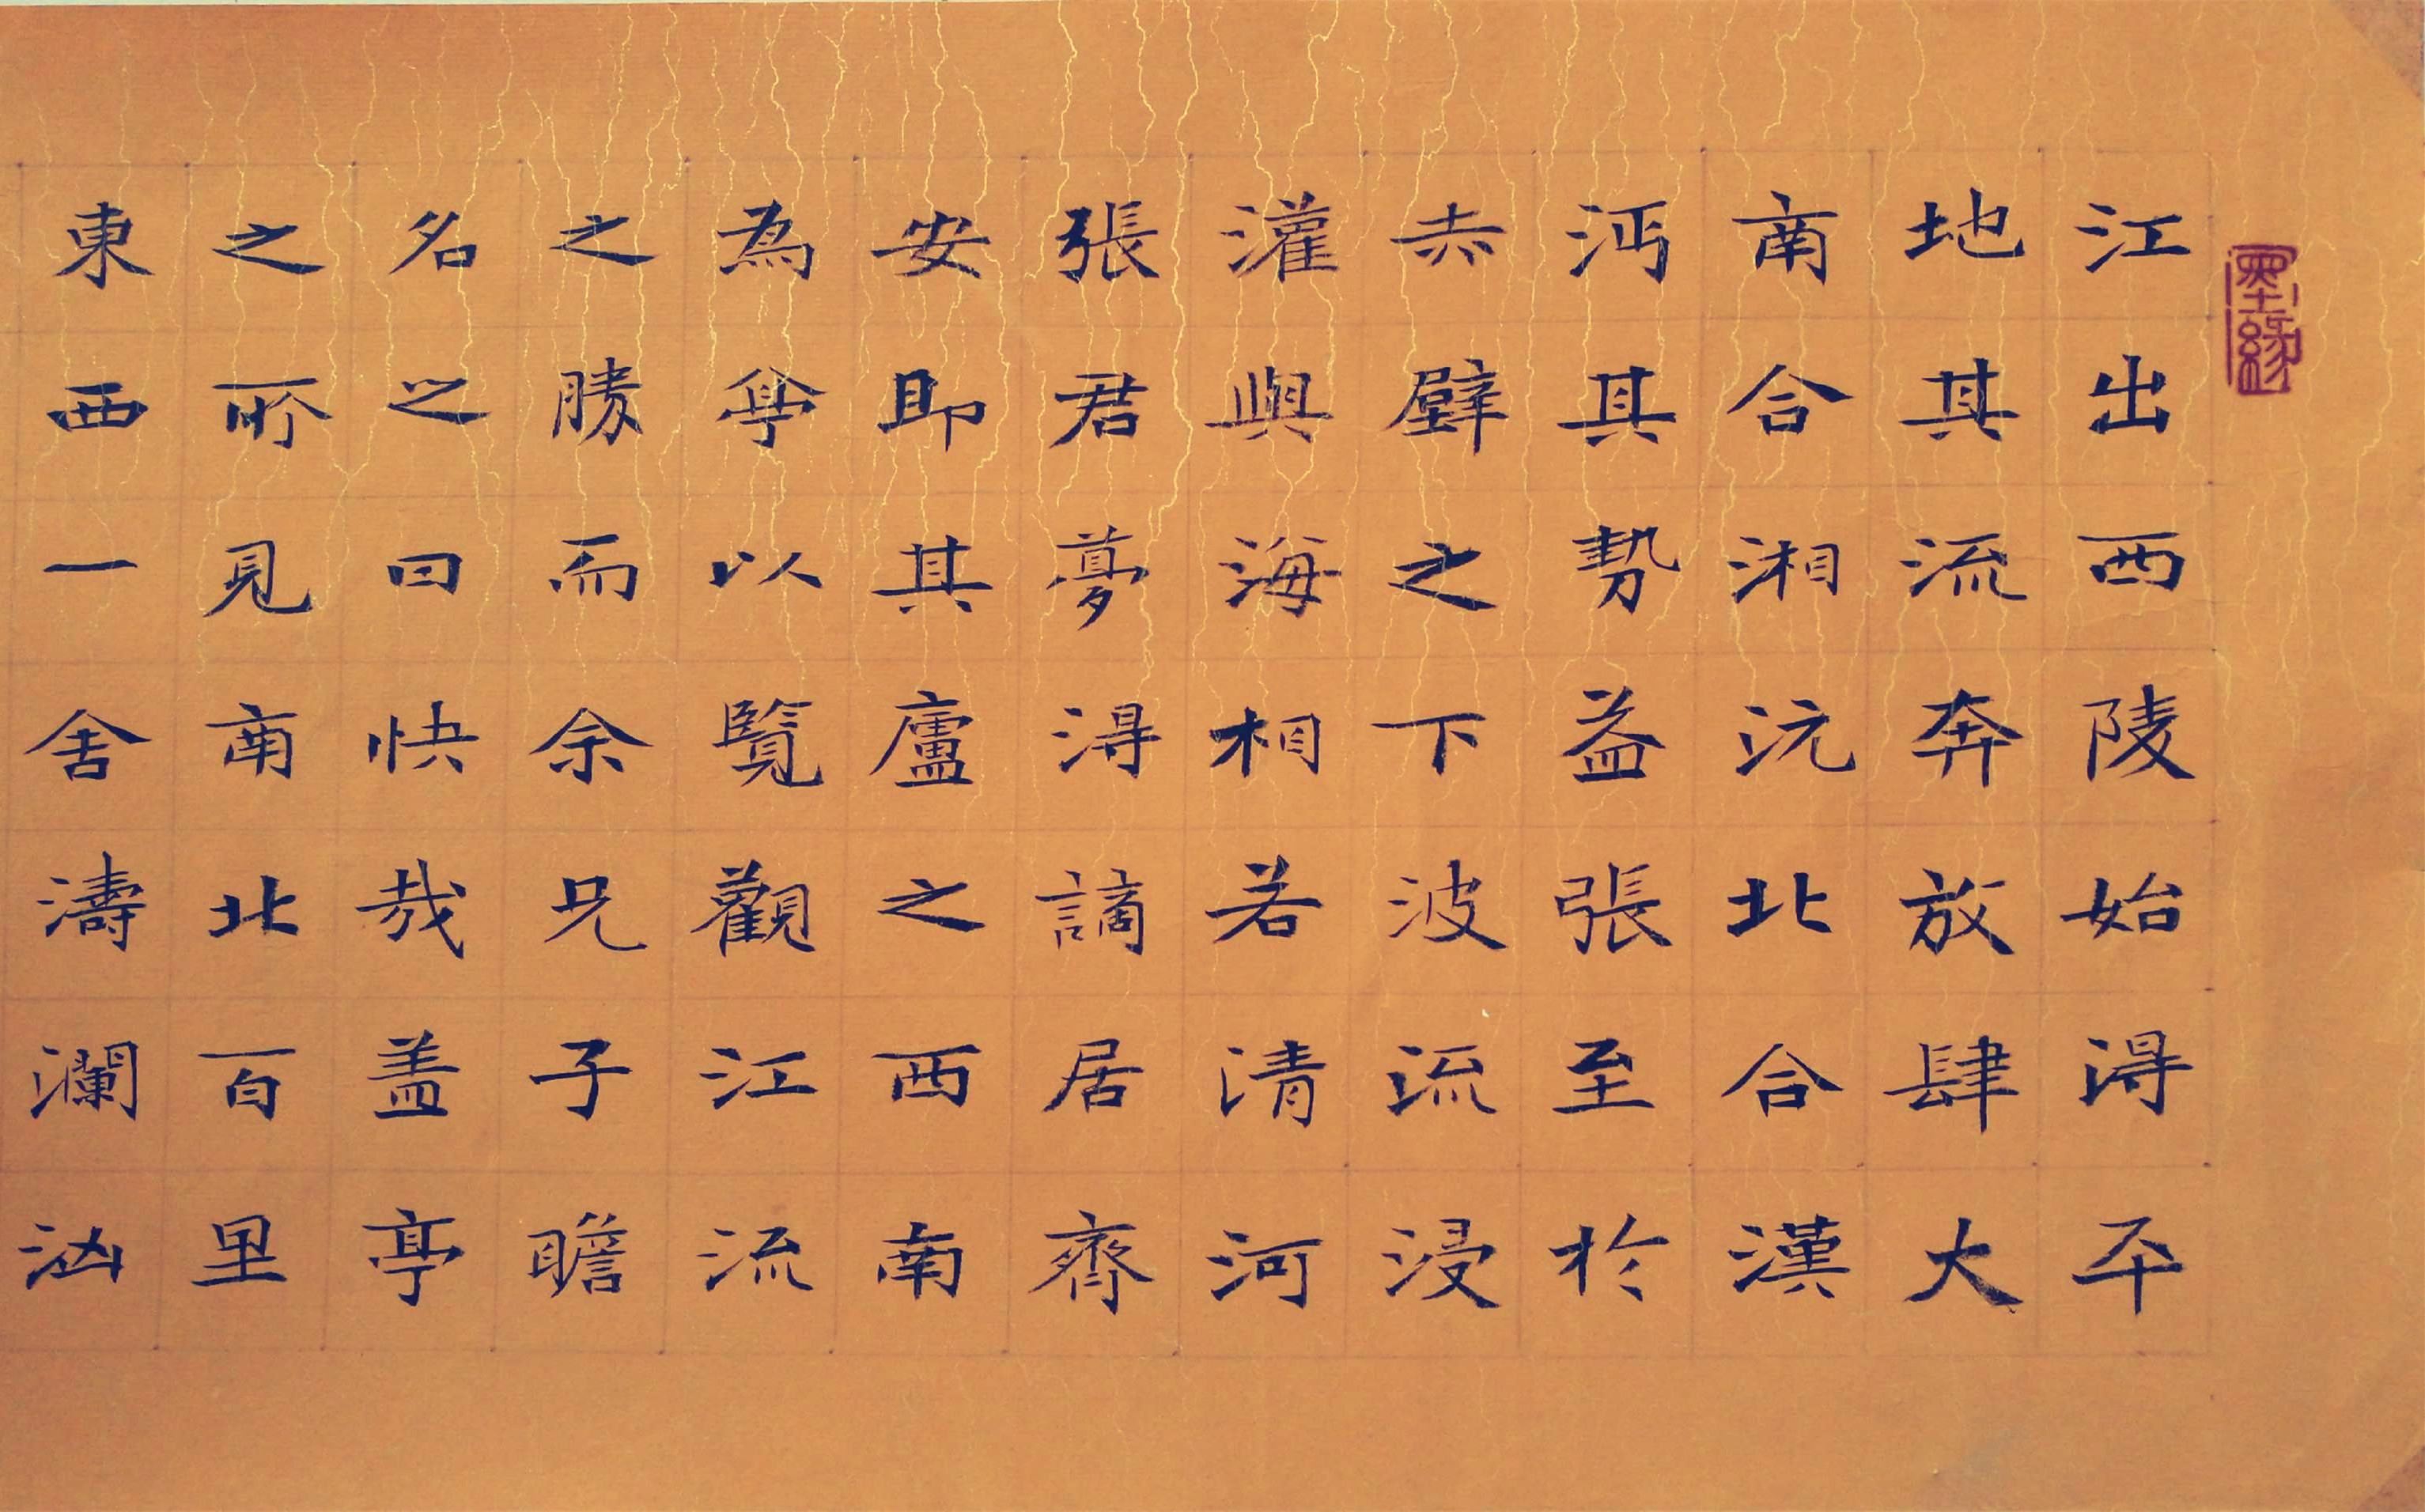 墨緣
江出西陵始淂平
地其流奔放肆大
南合湘沅北合漢
沔其勢益張至於
赤壁之下波流浸
灌與海相若清河
張君夢淂謫居齊
安即其廬之西南
為亭以覽觀江流
之勝而余兄子瞻
名之曰快哉蓋亭
之所見南北百里
東西一舍濤瀾汹